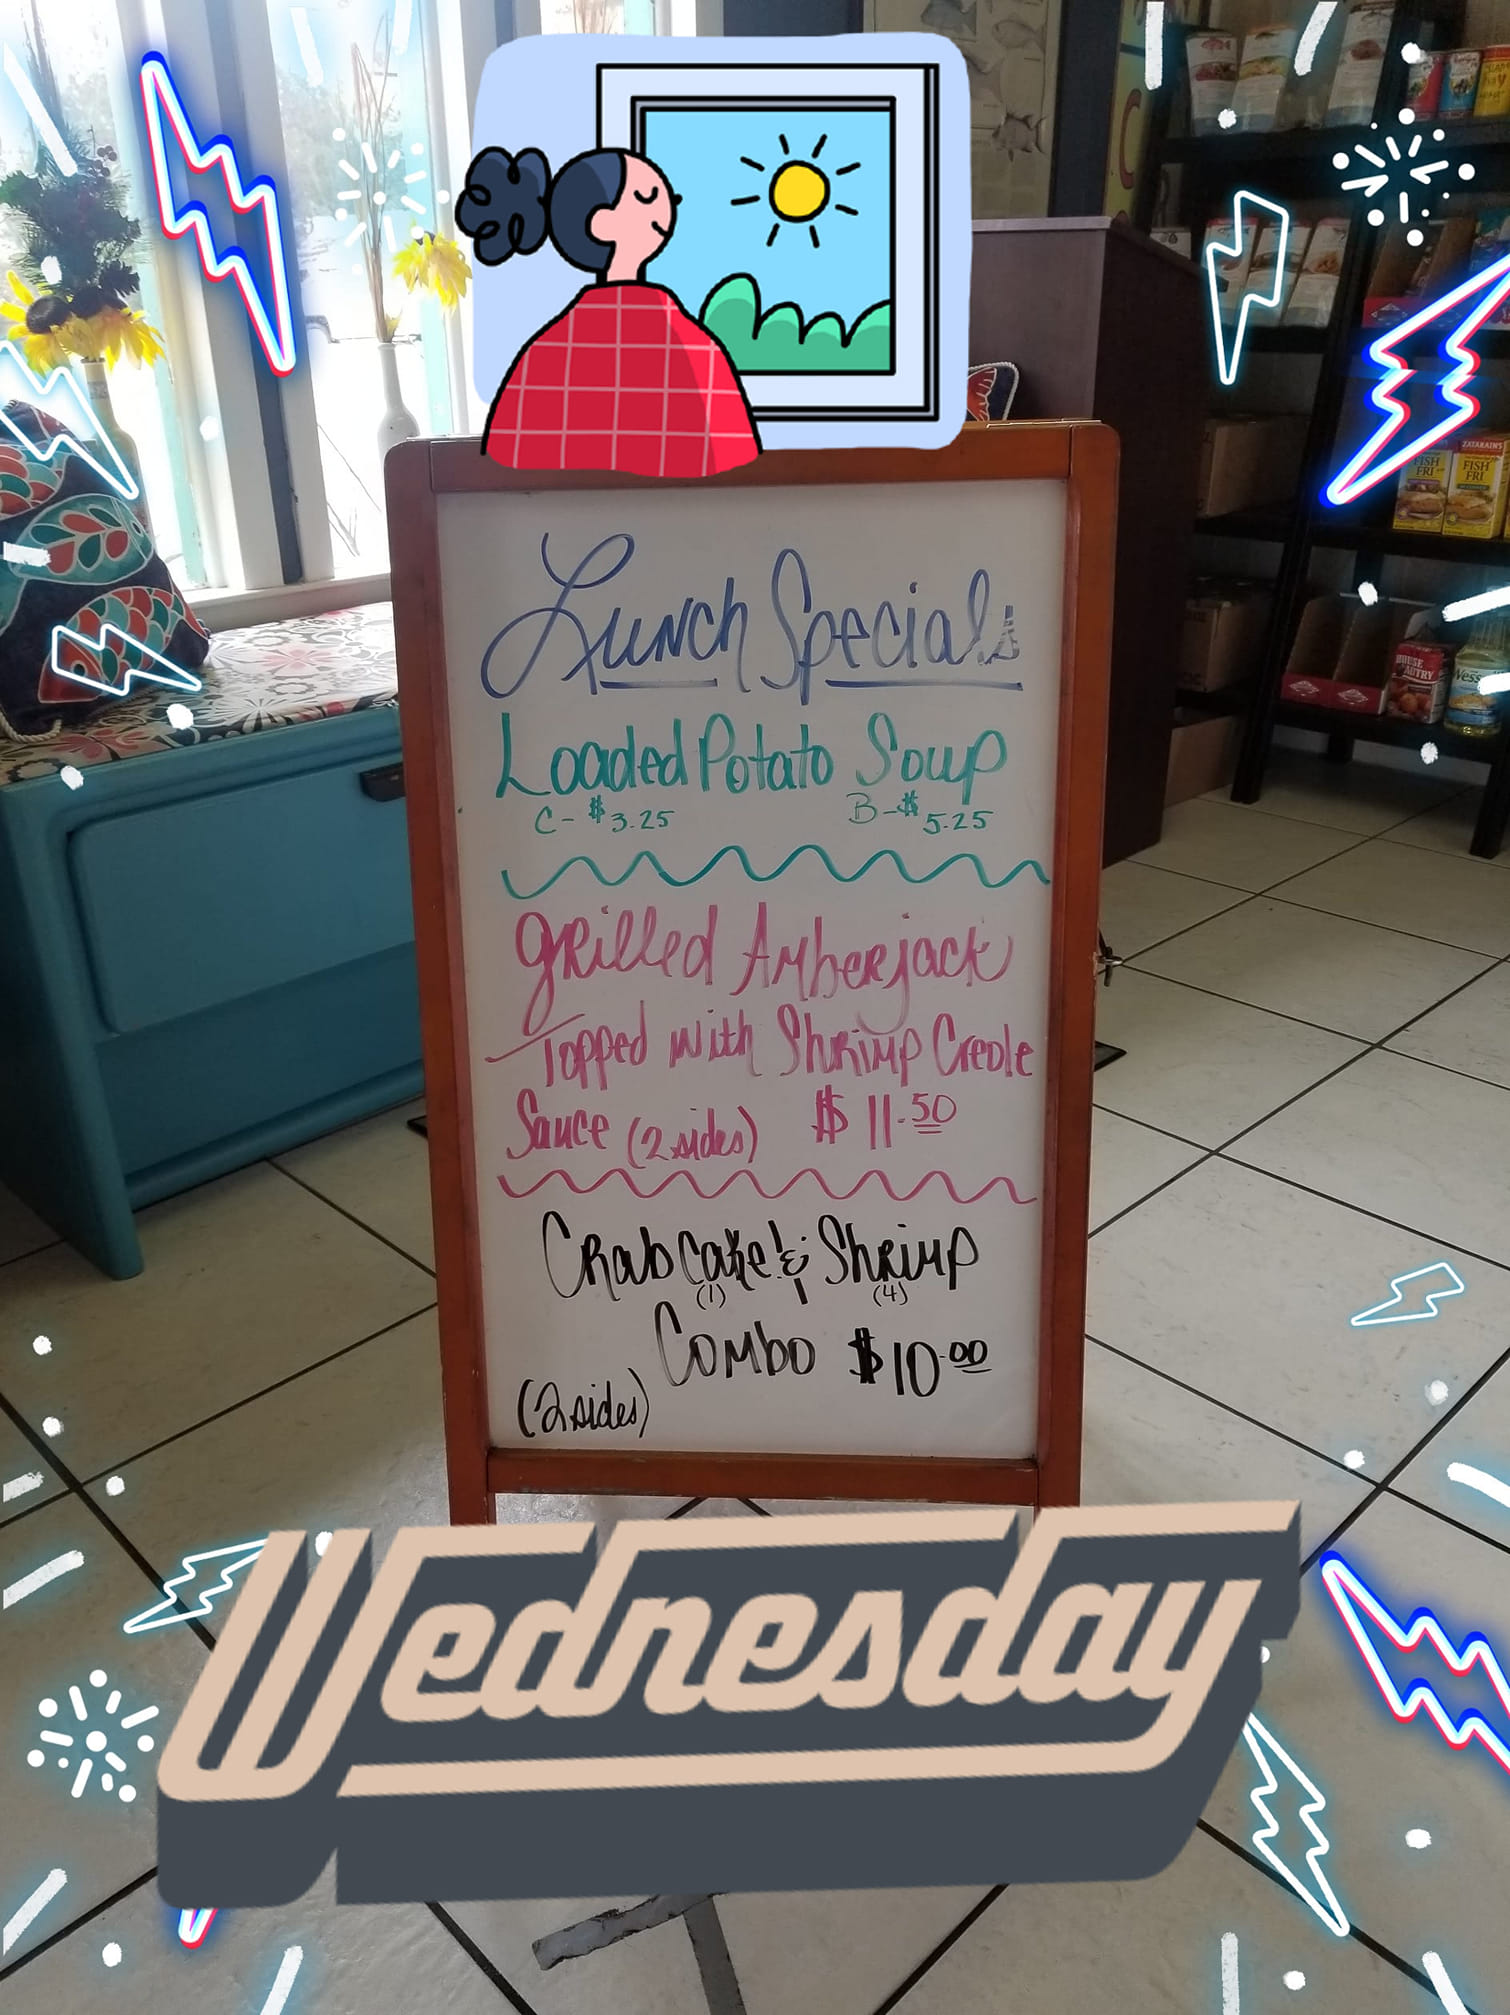 Lunch Specials
Loaded Potato Soup
C- $3.25 B-$5.25
Grilled Amberjack
Topped with Shrimp Creole
Sauce (2 sides) $11.50
Crab Cake & Shrimp
(1) (4)
Combo $10.00
(2 sides)
Wednesday
ZATARAIN'S
FISH
FRI
FISH
FRI
HOUSE
AUTRY
Wess